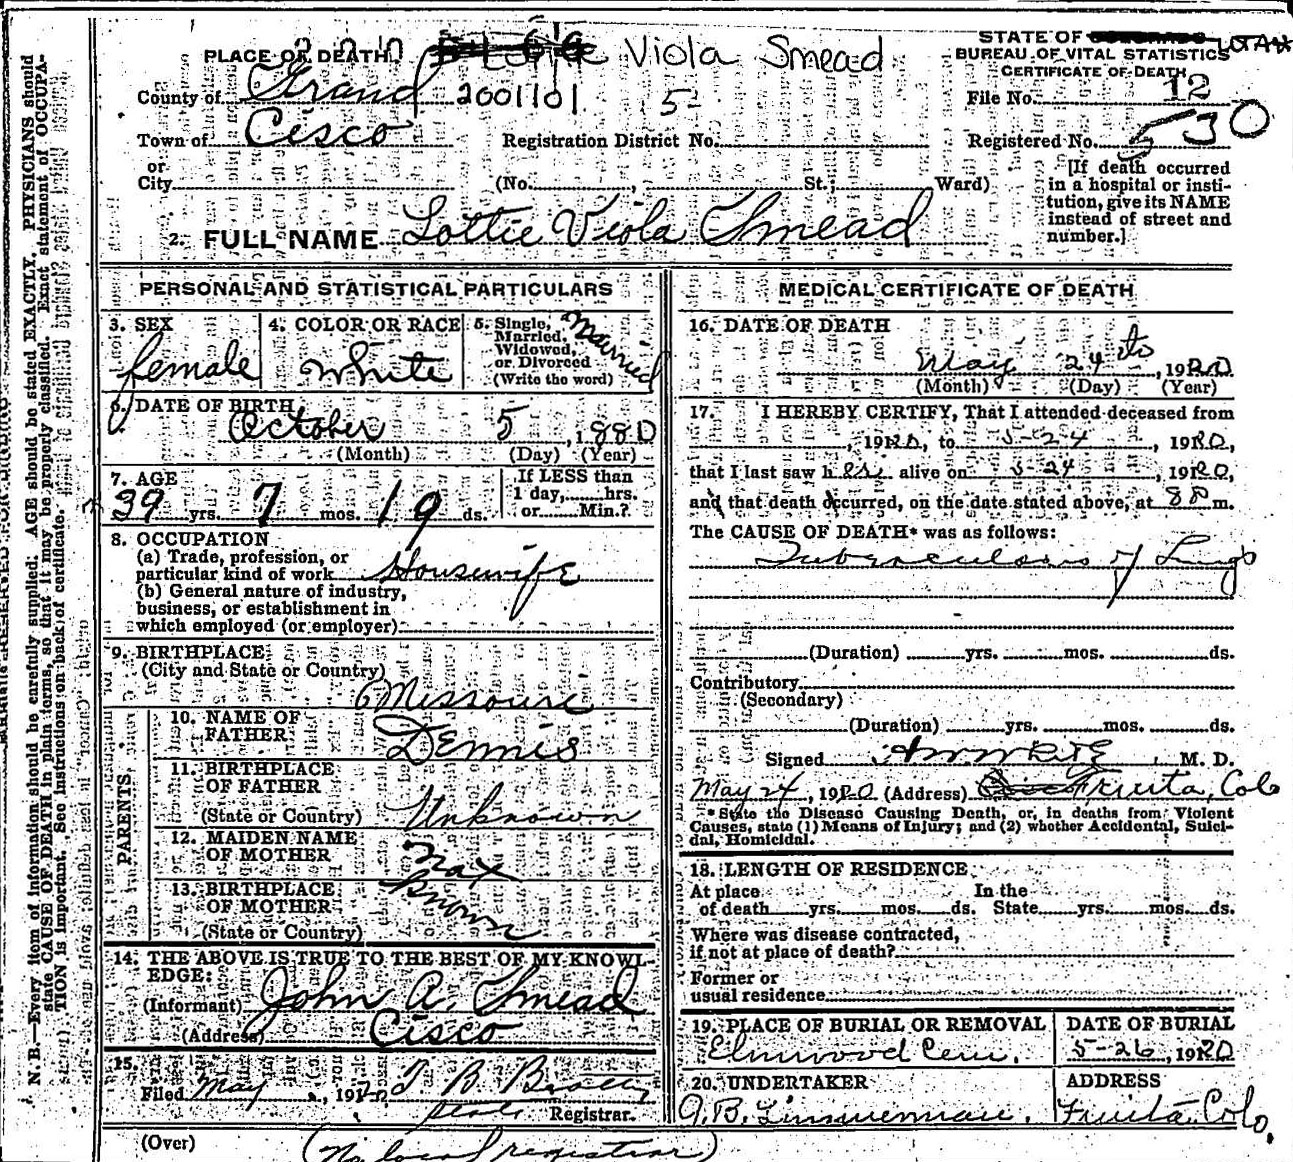 Viola Smead
STATE OF UTAH
PLACE OF DEATH
BUREAU OF VITAL STATISTICS
CERTIFICATE OF DEATH
County of Grand 2001101 5
File No. 12
Town of Cisco
Registration District No.
Registered No. 530
or
City (No. , St.; Ward)
[If death occurred
in a hospital or insti-
tution, give its NAME
instead of street and
number.]
2. FULL NAME Lottie Viola Smead
PERSONAL AND STATISTICAL PARTICULARS
3. SEX
female
4. COLOR OR RACE
White
5. Single,
Married,
Widowed,
or Divorced
(Write the word)
Married
6. DATE OF BIRTH
October 5, 1880
(Month) (Day) (Year)
7. AGE
39 yrs. 7 mos. 19 ds.
If LESS than
1 day, hrs.
or Min.?
8. OCCUPATION
(a) Trade, profession, or
particular kind of work Housewife
(b) General nature of industry,
business, or establishment in
which employed (or employer)
9. BIRTHPLACE
(City and State or Country)
Missouri
PARENTS
10. NAME OF
FATHER Dennis
11. BIRTHPLACE
OF FATHER
(State or Country) Unknown
12. MAIDEN NAME
OF MOTHER Not
13. BIRTHPLACE Known
OF MOTHER
(State or Country)
14. THE ABOVE IS TRUE TO THE BEST OF MY KNOWL-
EDGE:
(Informant) John A. Smead
(Address) Cisco
15.
Filed May , 1920 T B
Registrar.
(Over) (No local registrar)
MEDICAL CERTIFICATE OF DEATH
16. DATE OF DEATH
May 24 , 1920
(Month) (Day) (Year)
17. I HEREBY CERTIFY, That I attended deceased from
, 1920, to 5-24, 1920,
that I last saw her alive on 5-24, 1920,
and that death occurred, on the date stated above, at 8 P m.
The CAUSE OF DEATH* was as follows:
Tuberculosis of Lungs
(Duration) yrs. mos. ds.
Contributory
(Secondary)
(Duration) yrs. mos. ds.
Signed , M. D.
May 24, 1920 (Address) Fruita, Colo
*State the Disease Causing Death, or, in deaths from Violent
Causes, state (1) Means of Injury; and (2) whether Accidental, Suici-
dal, Homicidal.
18. LENGTH OF RESIDENCE
At place In the
of death yrs. mos. ds. State yrs. mos. ds.
Where was disease contracted,
if not at place of death?
Former or
usual residence
19. PLACE OF BURIAL OR REMOVAL
Elmwood Cem.
DATE OF BURIAL
5-26, 1920
20. UNDERTAKER
ADDRESS
Fruita, Colo.
N. B.—Every item of information should be carefully supplied. AGE should be stated EXACTLY. PHYSICIANS should
state CAUSE OF DEATH in plain terms, so that it may be properly classified. Exact statement of OCCUPA-
TION is important. See instructions on back of certificate.